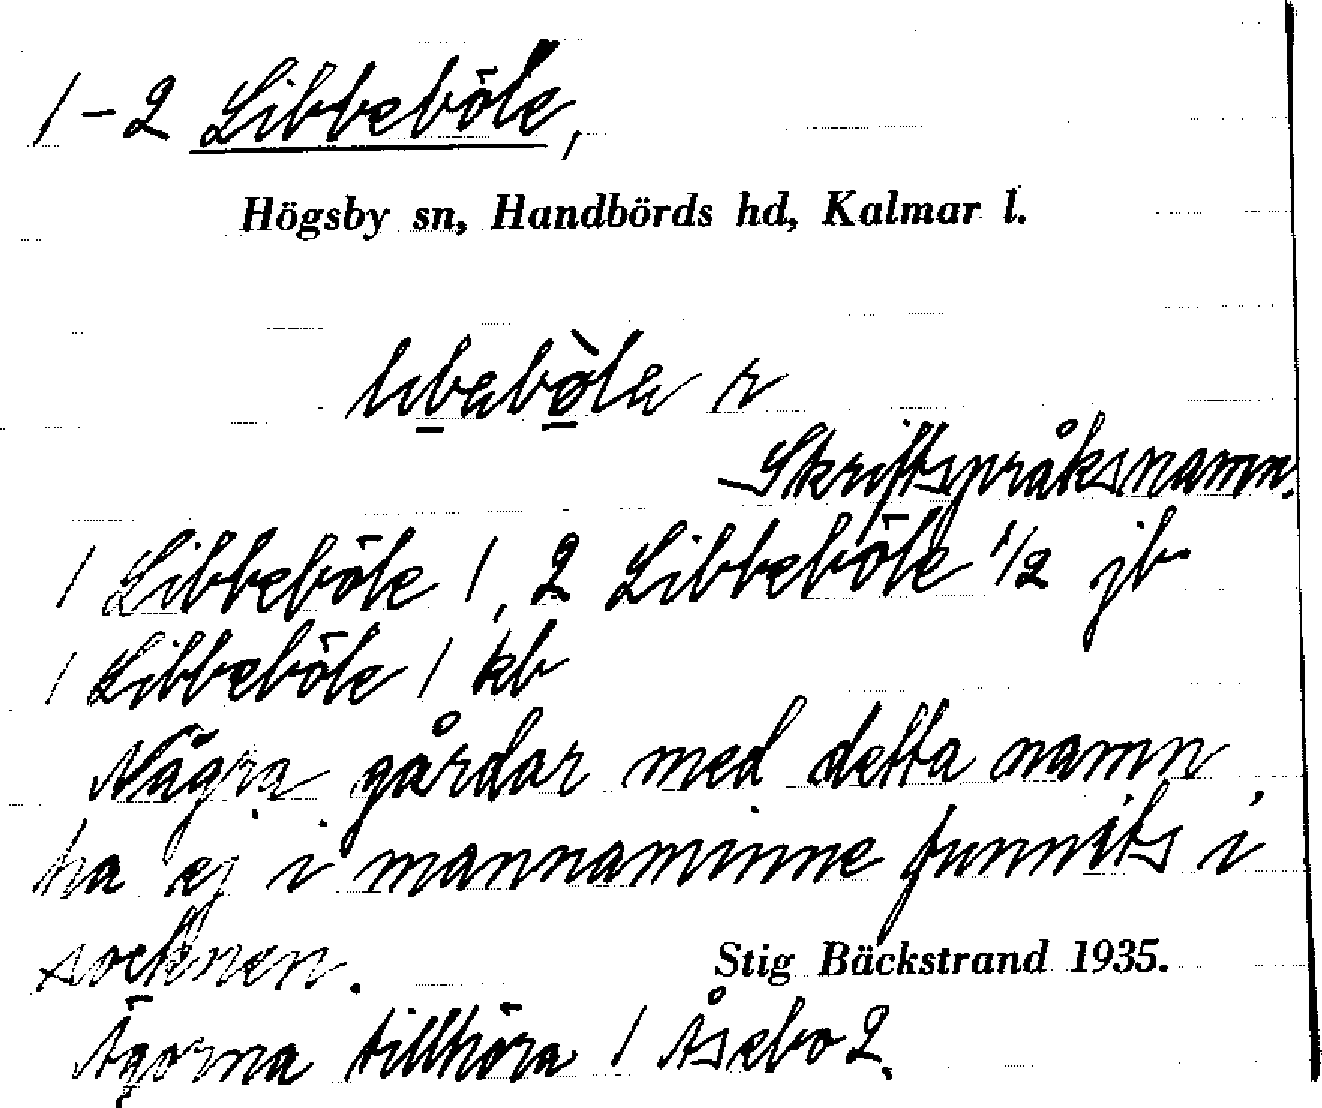 1-2 Libbeböle,
Högsby sn, Handbörds hd, Kalmar l.
r
Skriftspråksnamn.
1 Libbeböle 1, 2 Libbeböle 1/2 jb
1 Libbeböle 1 kb
Några gårdar med detta namn
ha ej i mannaminne funnits i
socknen.
Stig Bäckstrand 1935.
Ägorna tillhöra 1 Åsebo 2.